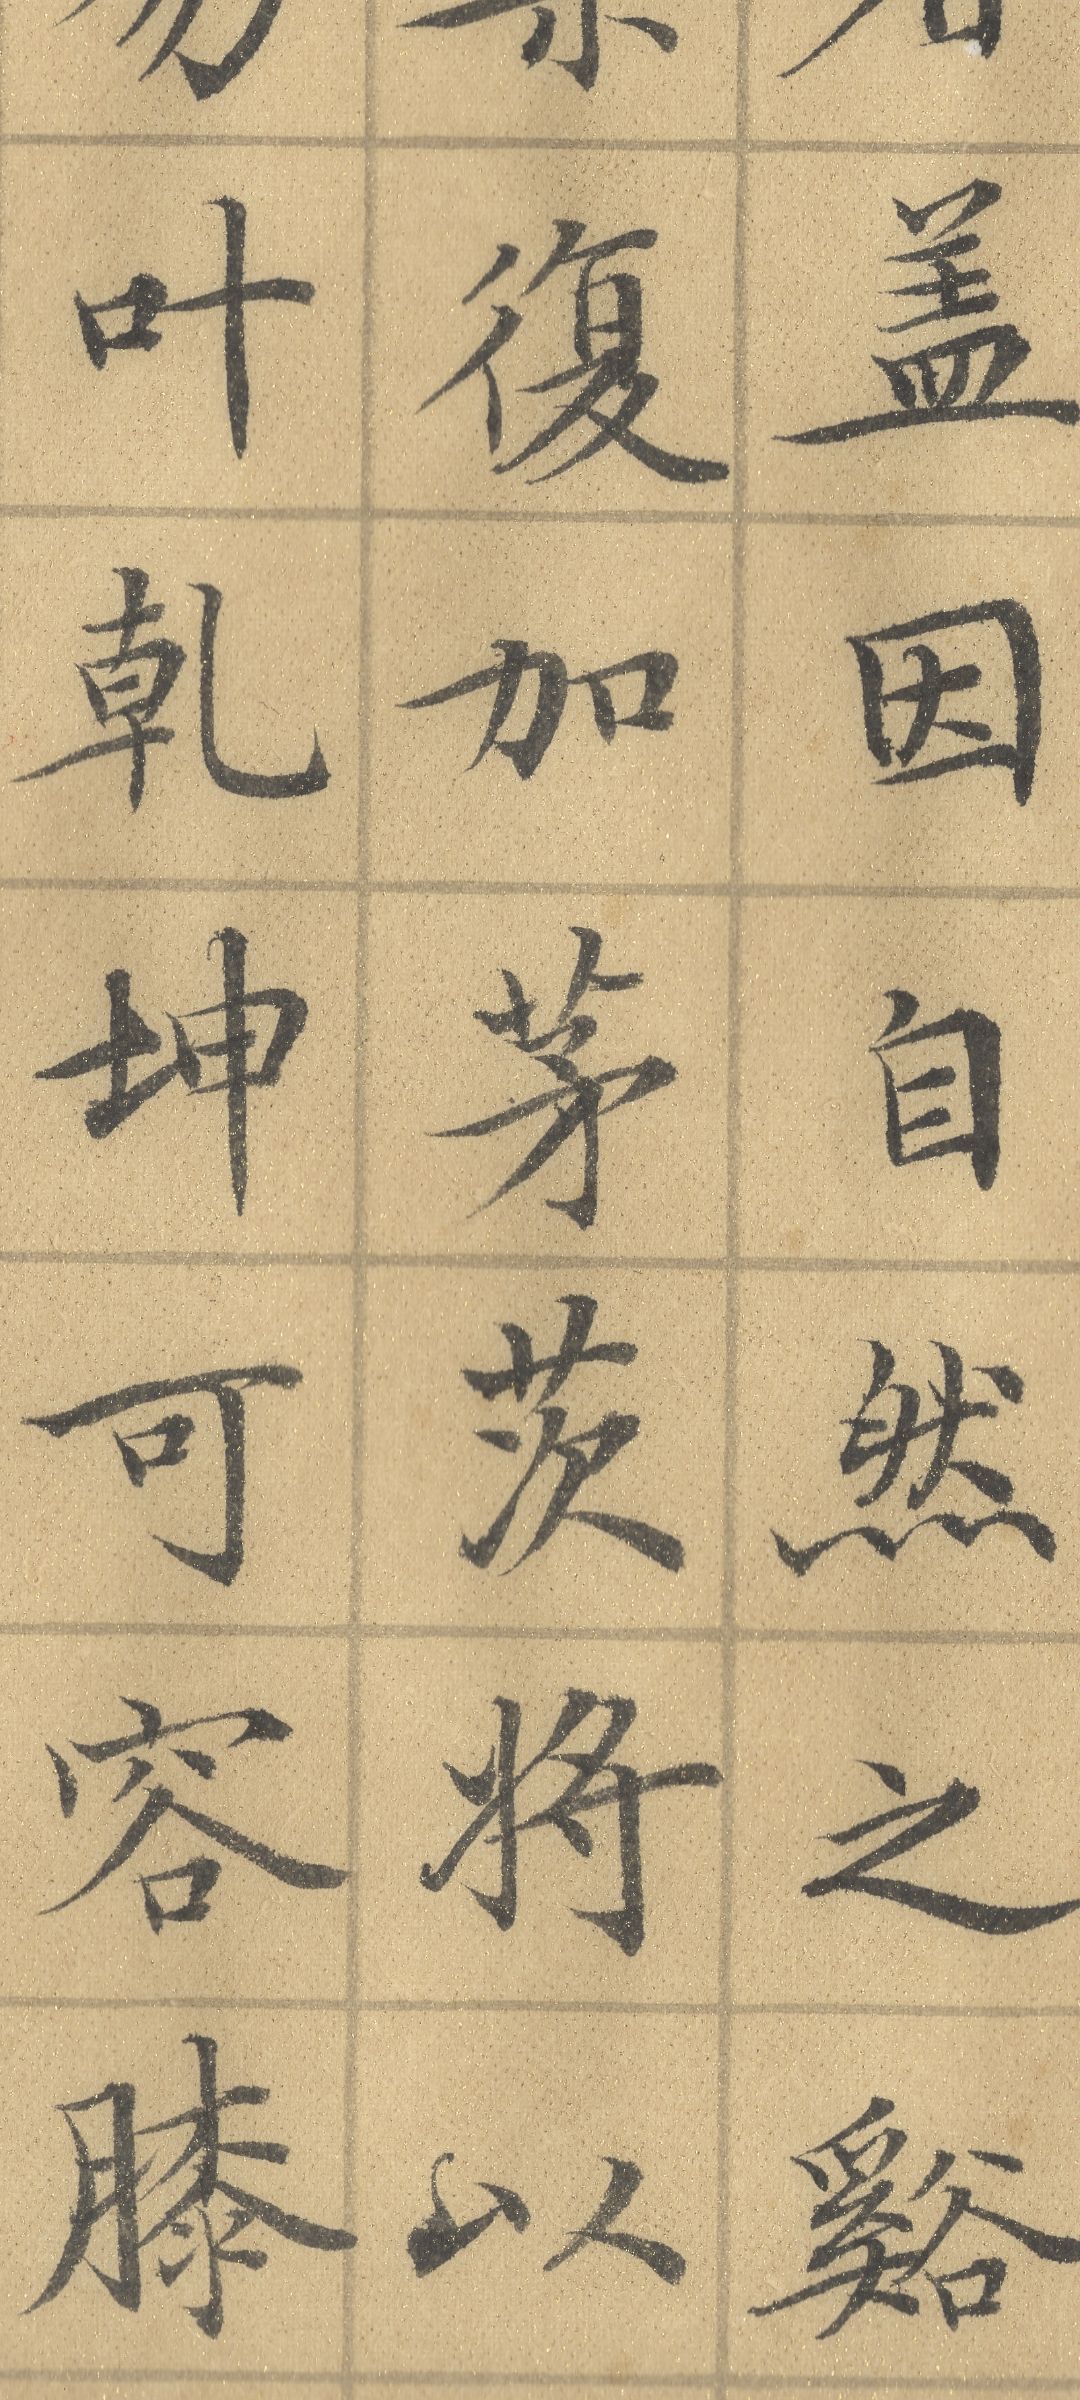 盖因自然之谿
復加茅茨將以
叶乾坤可容膝